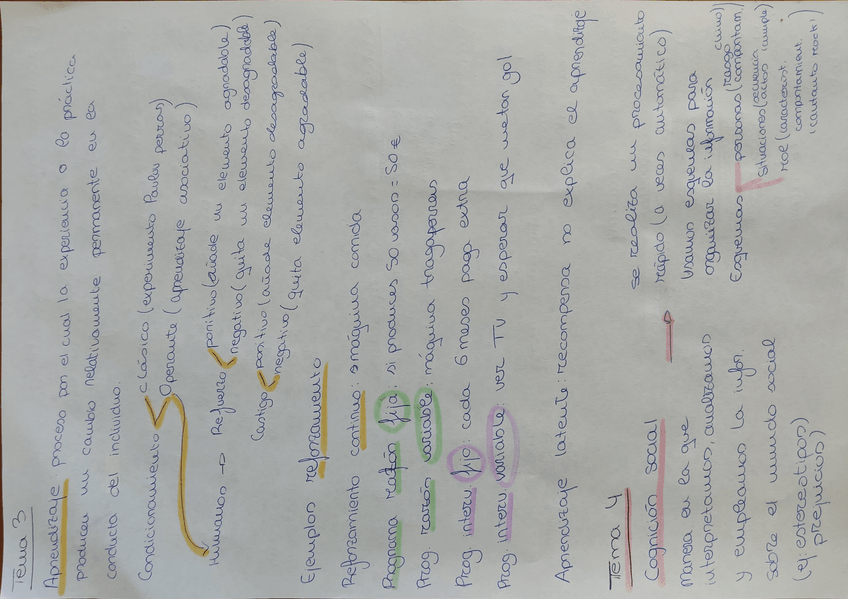 Tema 3
Aprendizaje proceso por el cual la experiencia o la práctica
producen un cambio relativamente permanente en la
conducta del individuo.
Condicionamiento clásico (experimento Pavlov perros)
Operante (aprendizaje asociativo)
Humanos → Refuerzo positivo (añade un elemento agradable)
negativo (quita un elemento desagradable)
Castigo positivo (añade elemento desagradable)
negativo (quita elemento agradable)
Ejemplos reforzamiento
Reforzamiento continuo: máquina comida
Programa razón fija: si produces 50 vasos = 50€
Prog razón variable: máquina tragaperras
Prog. interv. fijo: cada 6 meses paga extra
Prog. interv. variable: ver TV y esperar que metan gol
Aprendizaje latente: recompensa no explica el aprendizaje
Tema 4
Cognición social →
Manera en la que
interpretamos, analizamos
y empleamos la infor.
sobre el mundo social
(ej: estereotipos)
prejuicios)
Se realiza un procesamiento
rápido (a veces automático)
Usamos esquemas para
organizar la información
Esquemas personas (comportam.
rasgo
Situaciones (secuencia
actos
Rol (característ.
comportamient.